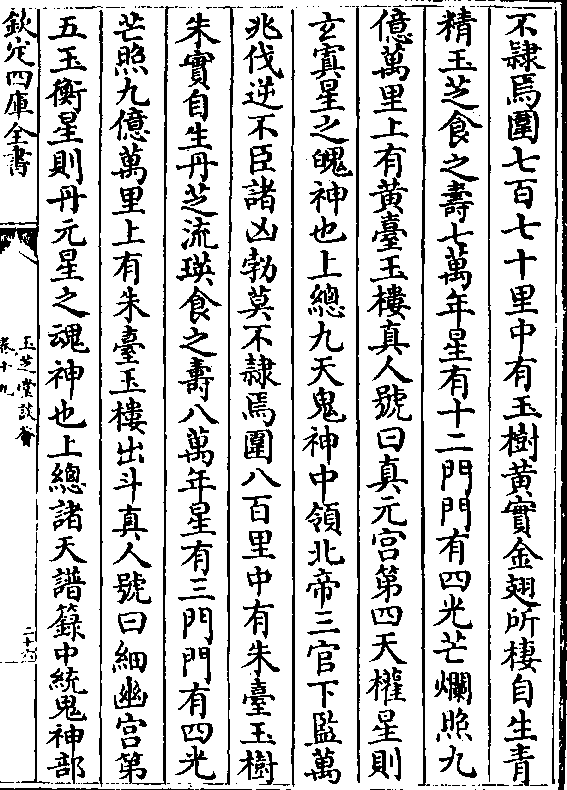 不隸焉圍七百七十里中有玉樹黃實金翅所棲自生青
精玉芝食之壽七萬年星有十二門門有四光芒爛照九
億萬里上有黃臺玉樓真人號曰真元宮第四天權星則
玄冥星之魄神也上總九天鬼神中領北帝三官下監萬
兆伐逆不臣諸凶勃莫不隸焉圍八百里中有朱臺玉樹
朱實自生丹芝流瑛食之壽八萬年星有三門門有四光
芒照九億萬里上有朱臺玉樓出斗真人號曰細幽宮第
五玉衡星則丹元星之魂神也上總諸天譜籙中統鬼神部
欽定四庫全書
玉芝堂談薈
卷十九
二十六